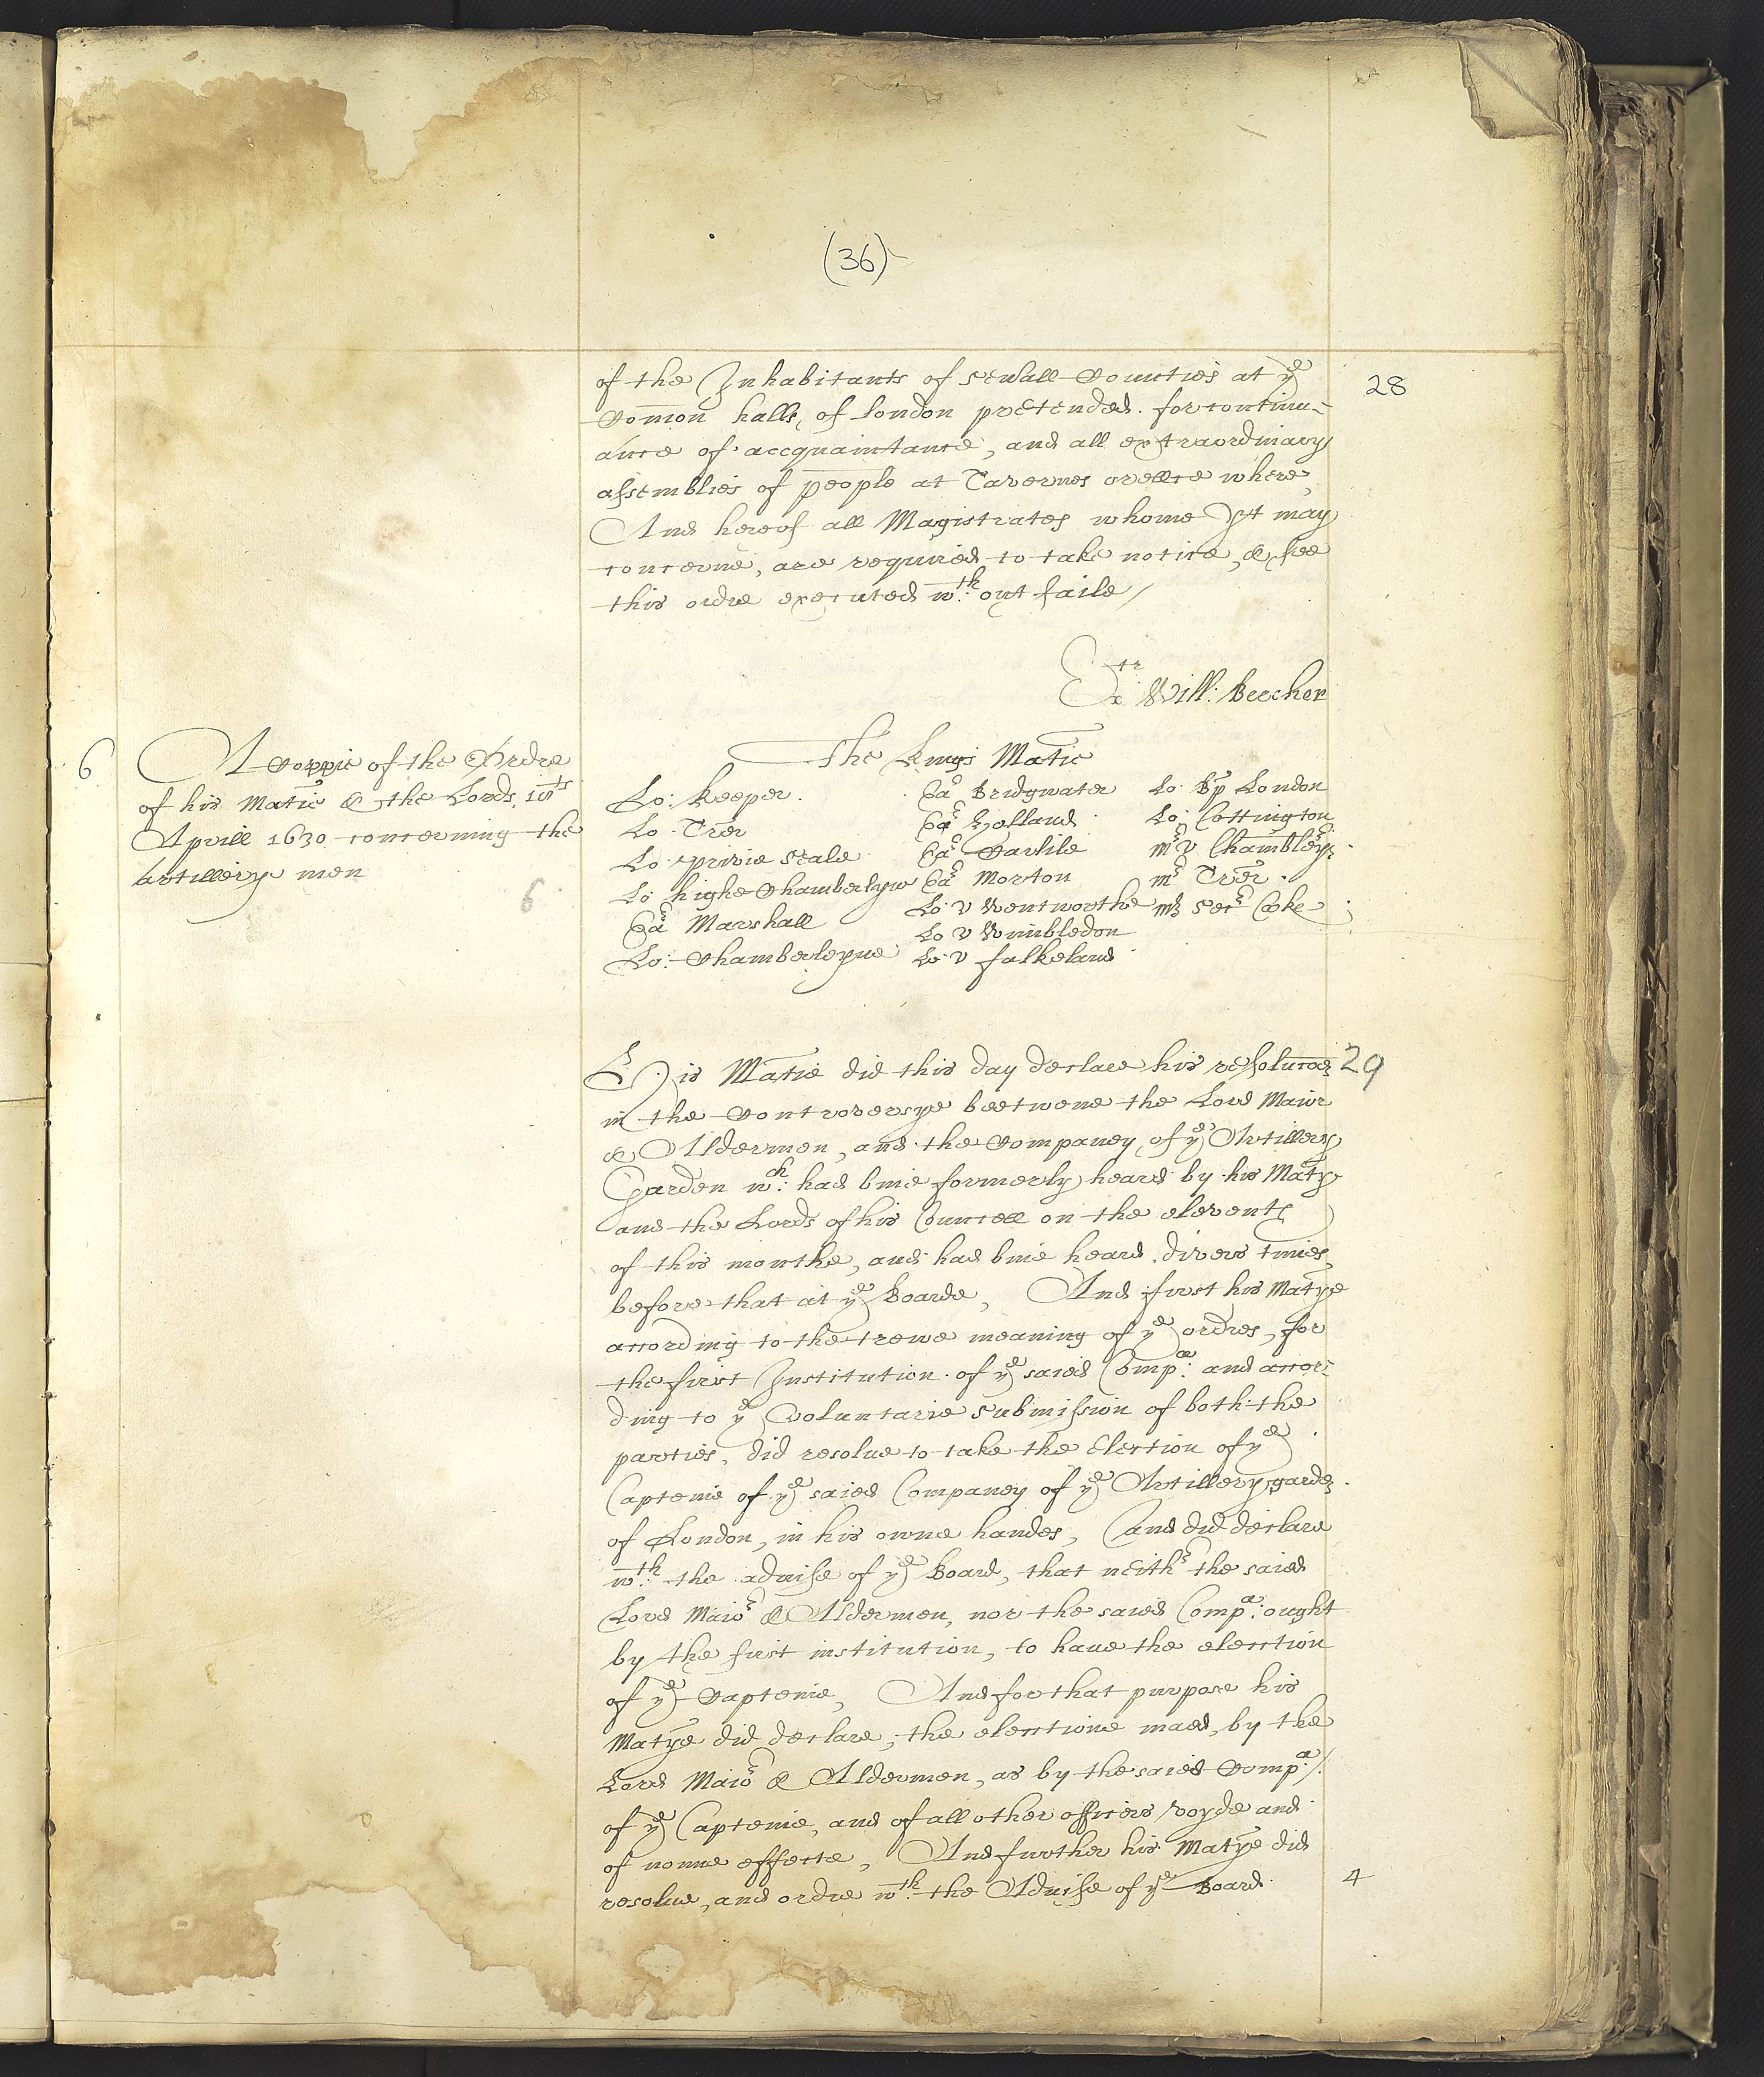 (36)
of the Inhabitants of seuall Counties at yᵉ
Comon halls, of london pretended. for continu=
ance of accquaintance, and all extraordinary
assemblies of people at Tavernes or ellce where,
And hereof all Magistrates whome Yt may
concerne, are required to take notice, & see
this ordre executed wᵗʰ: out faile /
28
Exᵗʳ Will: Beecher
6
A Coppie of the Ordre
of his Matie & the Lords,
Aprill 1630 concerning the
Artillery men
6
The kings Matie
Lo: keeper. Eaʳ Bridgwater Lo: Bp London
Lo: Trer Eaʳ Holland Lo: Cottington
Lo: privie seale Eaʳ Carlile mʳ V Chambleyⁿ.
Lo: highe Chamberlyn Eaʳ Morton mʳ Trer.
Eaʳ Marshall Lo: V Wentworthe mʳ Secʳ Cooke
Lo: Chamberleyne Lo V Wimbledon
Lo: V falkeland
His Matie did this day declare his resolucoᵉⁿ 29
in the Controversye beetwene the Lord Maior
& Aldermen, and the Company of yᵉ Artillery
Garden wᶜʰ: had bine formerly heard by his Maty
and the Lords of his Councell on the eleventh
of this monthe, and had bine heard divers times,
before that at yᵉ Boarde, And first his Matye
according to the trewe meaning of yᵉ ordres, for
the first Institution of yᵉ saied Compᵃ: and accor=
ding to yᵉ Voluntarie submission of both the
parties, did resolue to take the Election of yᵉ
Captenie of yᵉ saied Companey of yᵉ Artillery garden.
of London, in his owne handes, and did declare
wᵗʰ: the aduise of yᵉ Board, that neithʳ the saied
Lord Maioʳ & Aldermen, nor the saied Compᵃ: ought
by the first institution, to haue the election
of yᵉ Captenie, And for that purpose his
Matye did declare, the electione maed, by the
Lord Maioʳ & Aldermen, as by the saied Compᵃ /.
of yᵉ Captenie, and of all other officers voyde and
of nonne effecte, And further his Matye did
resolue, and ordre wᵗʰ: the Aduise of yᵉ Board
4